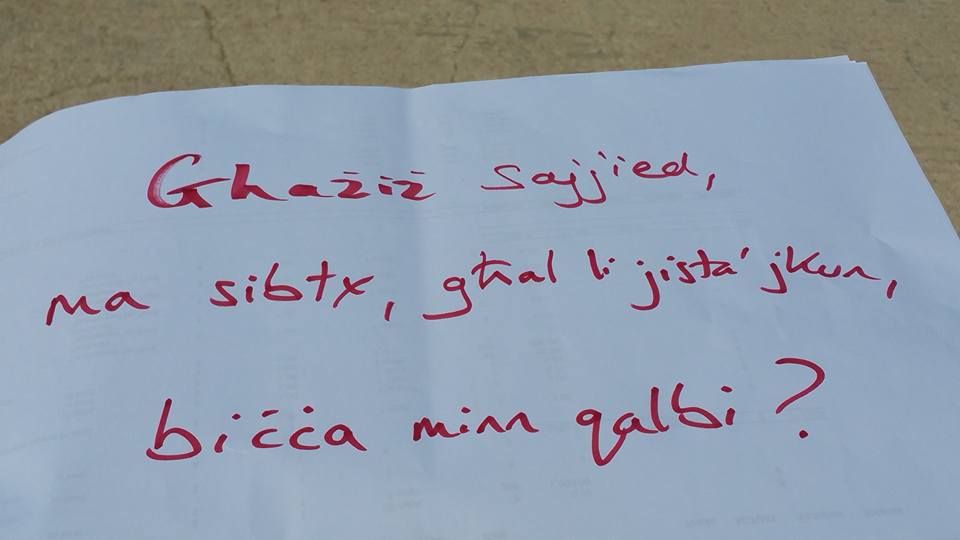 Għażiż sajjied,
ma sibtx, għal li jista' jkun,
biċċa minn qalbi?